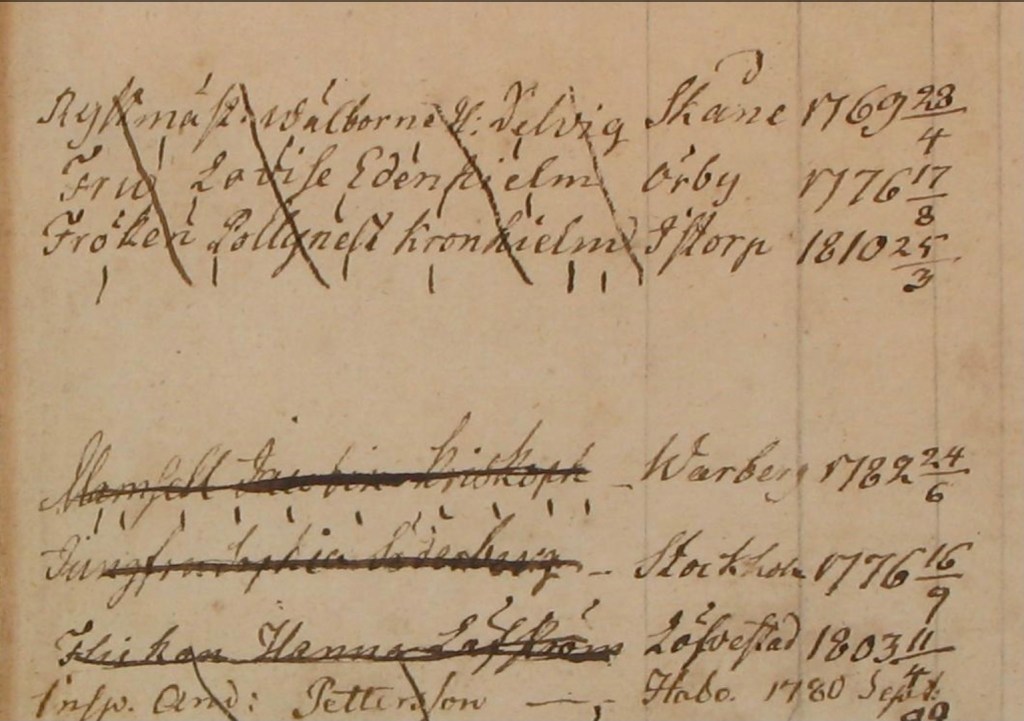 Ryttmäst. Wälborne H: Delvig Skåne 1769 23/4
Fru Lovise Edenhielm Örby 1776 17/8
Fröken Kronhielm Istorp 1810 25/3
Mamsell Warberg 1782 24/6
Jungfru Sophia Söderberg – Stockholm 1776 16/9
Flickan Hanna Löfström Löfvestad 1803 11/4
Insp. And: Pettersson — Habo. 1780 Sept.